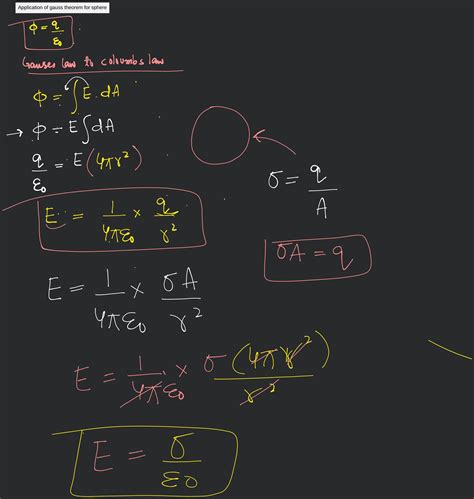 Application of gauss theorem for sphere
φ = q/ε0
Gauses law to coloumbs law
φ = ∫E.dA
→ φ = E∫dA
q/ε0 = E(4πr²)
E = 1/4πε0 × q/r²
σ = q/A
σA = q
E = 1/4πε0 × σA/r²
E = 1/4πε0 × σ(4πr²)/r²
E = σ/ε0